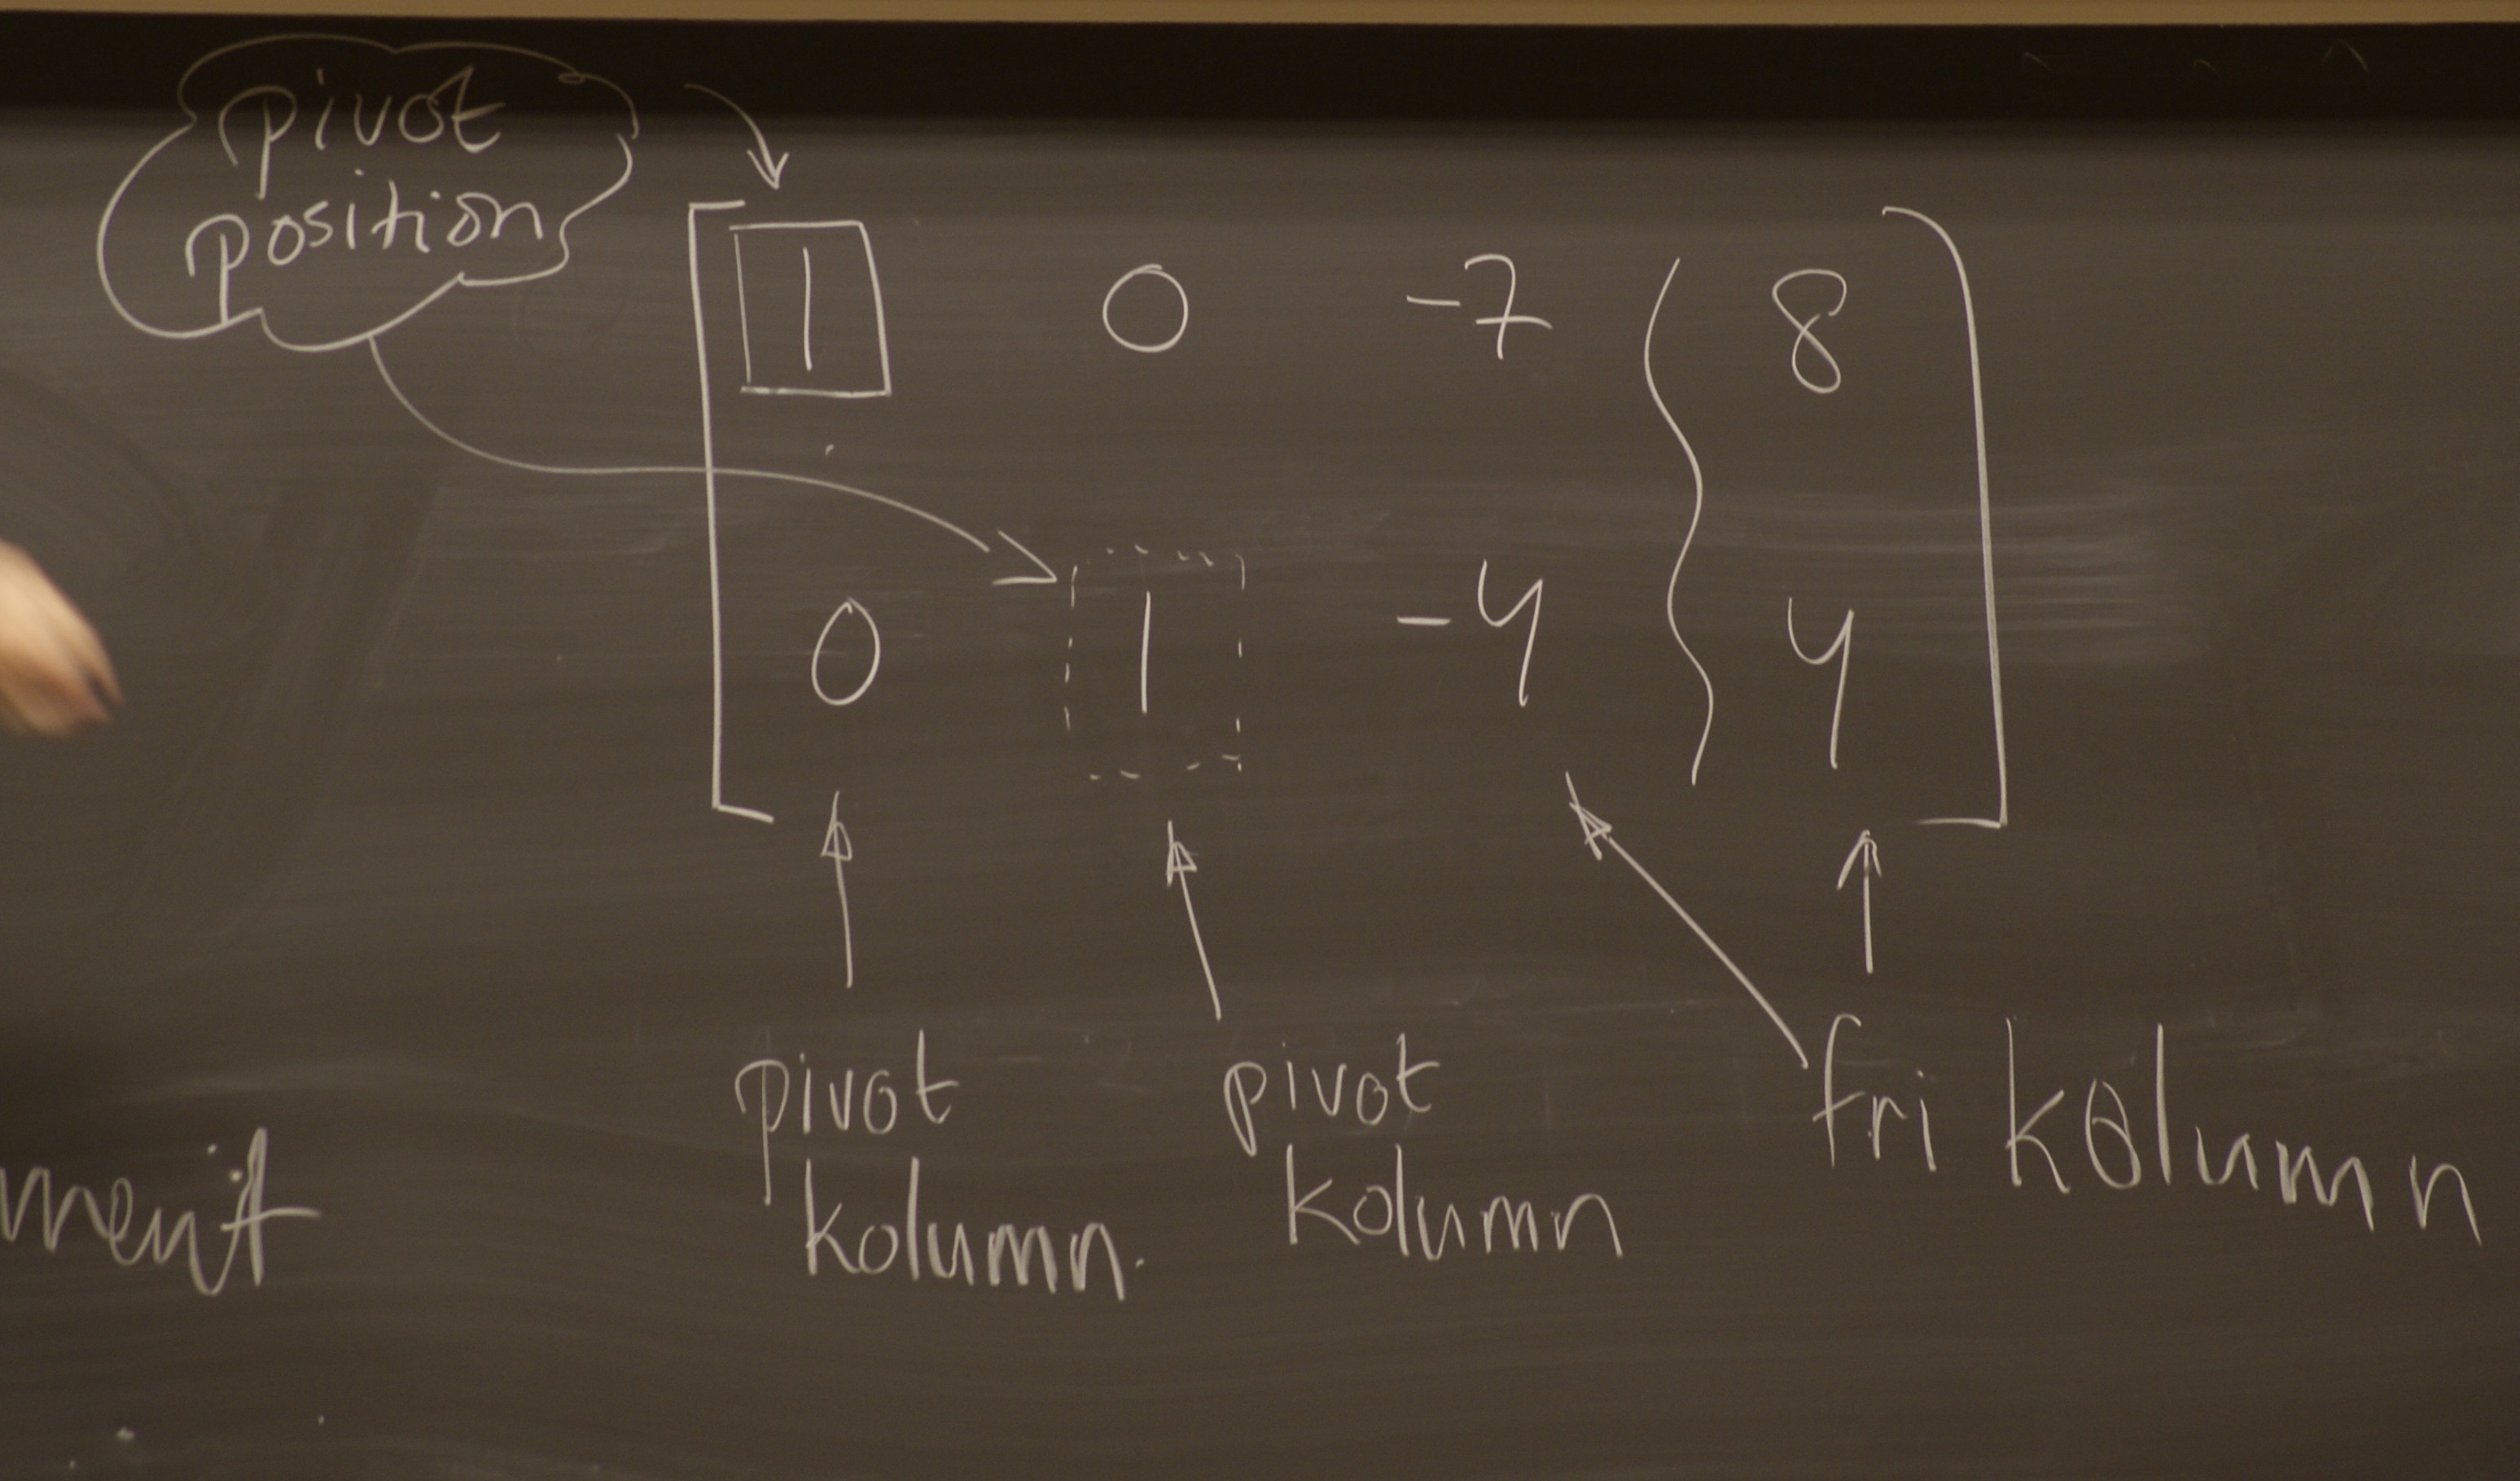 pivot
position
1 0 -7 8
0 1 -4 4
pivot
kolumn.
pivot
kolumn
fri kolumn